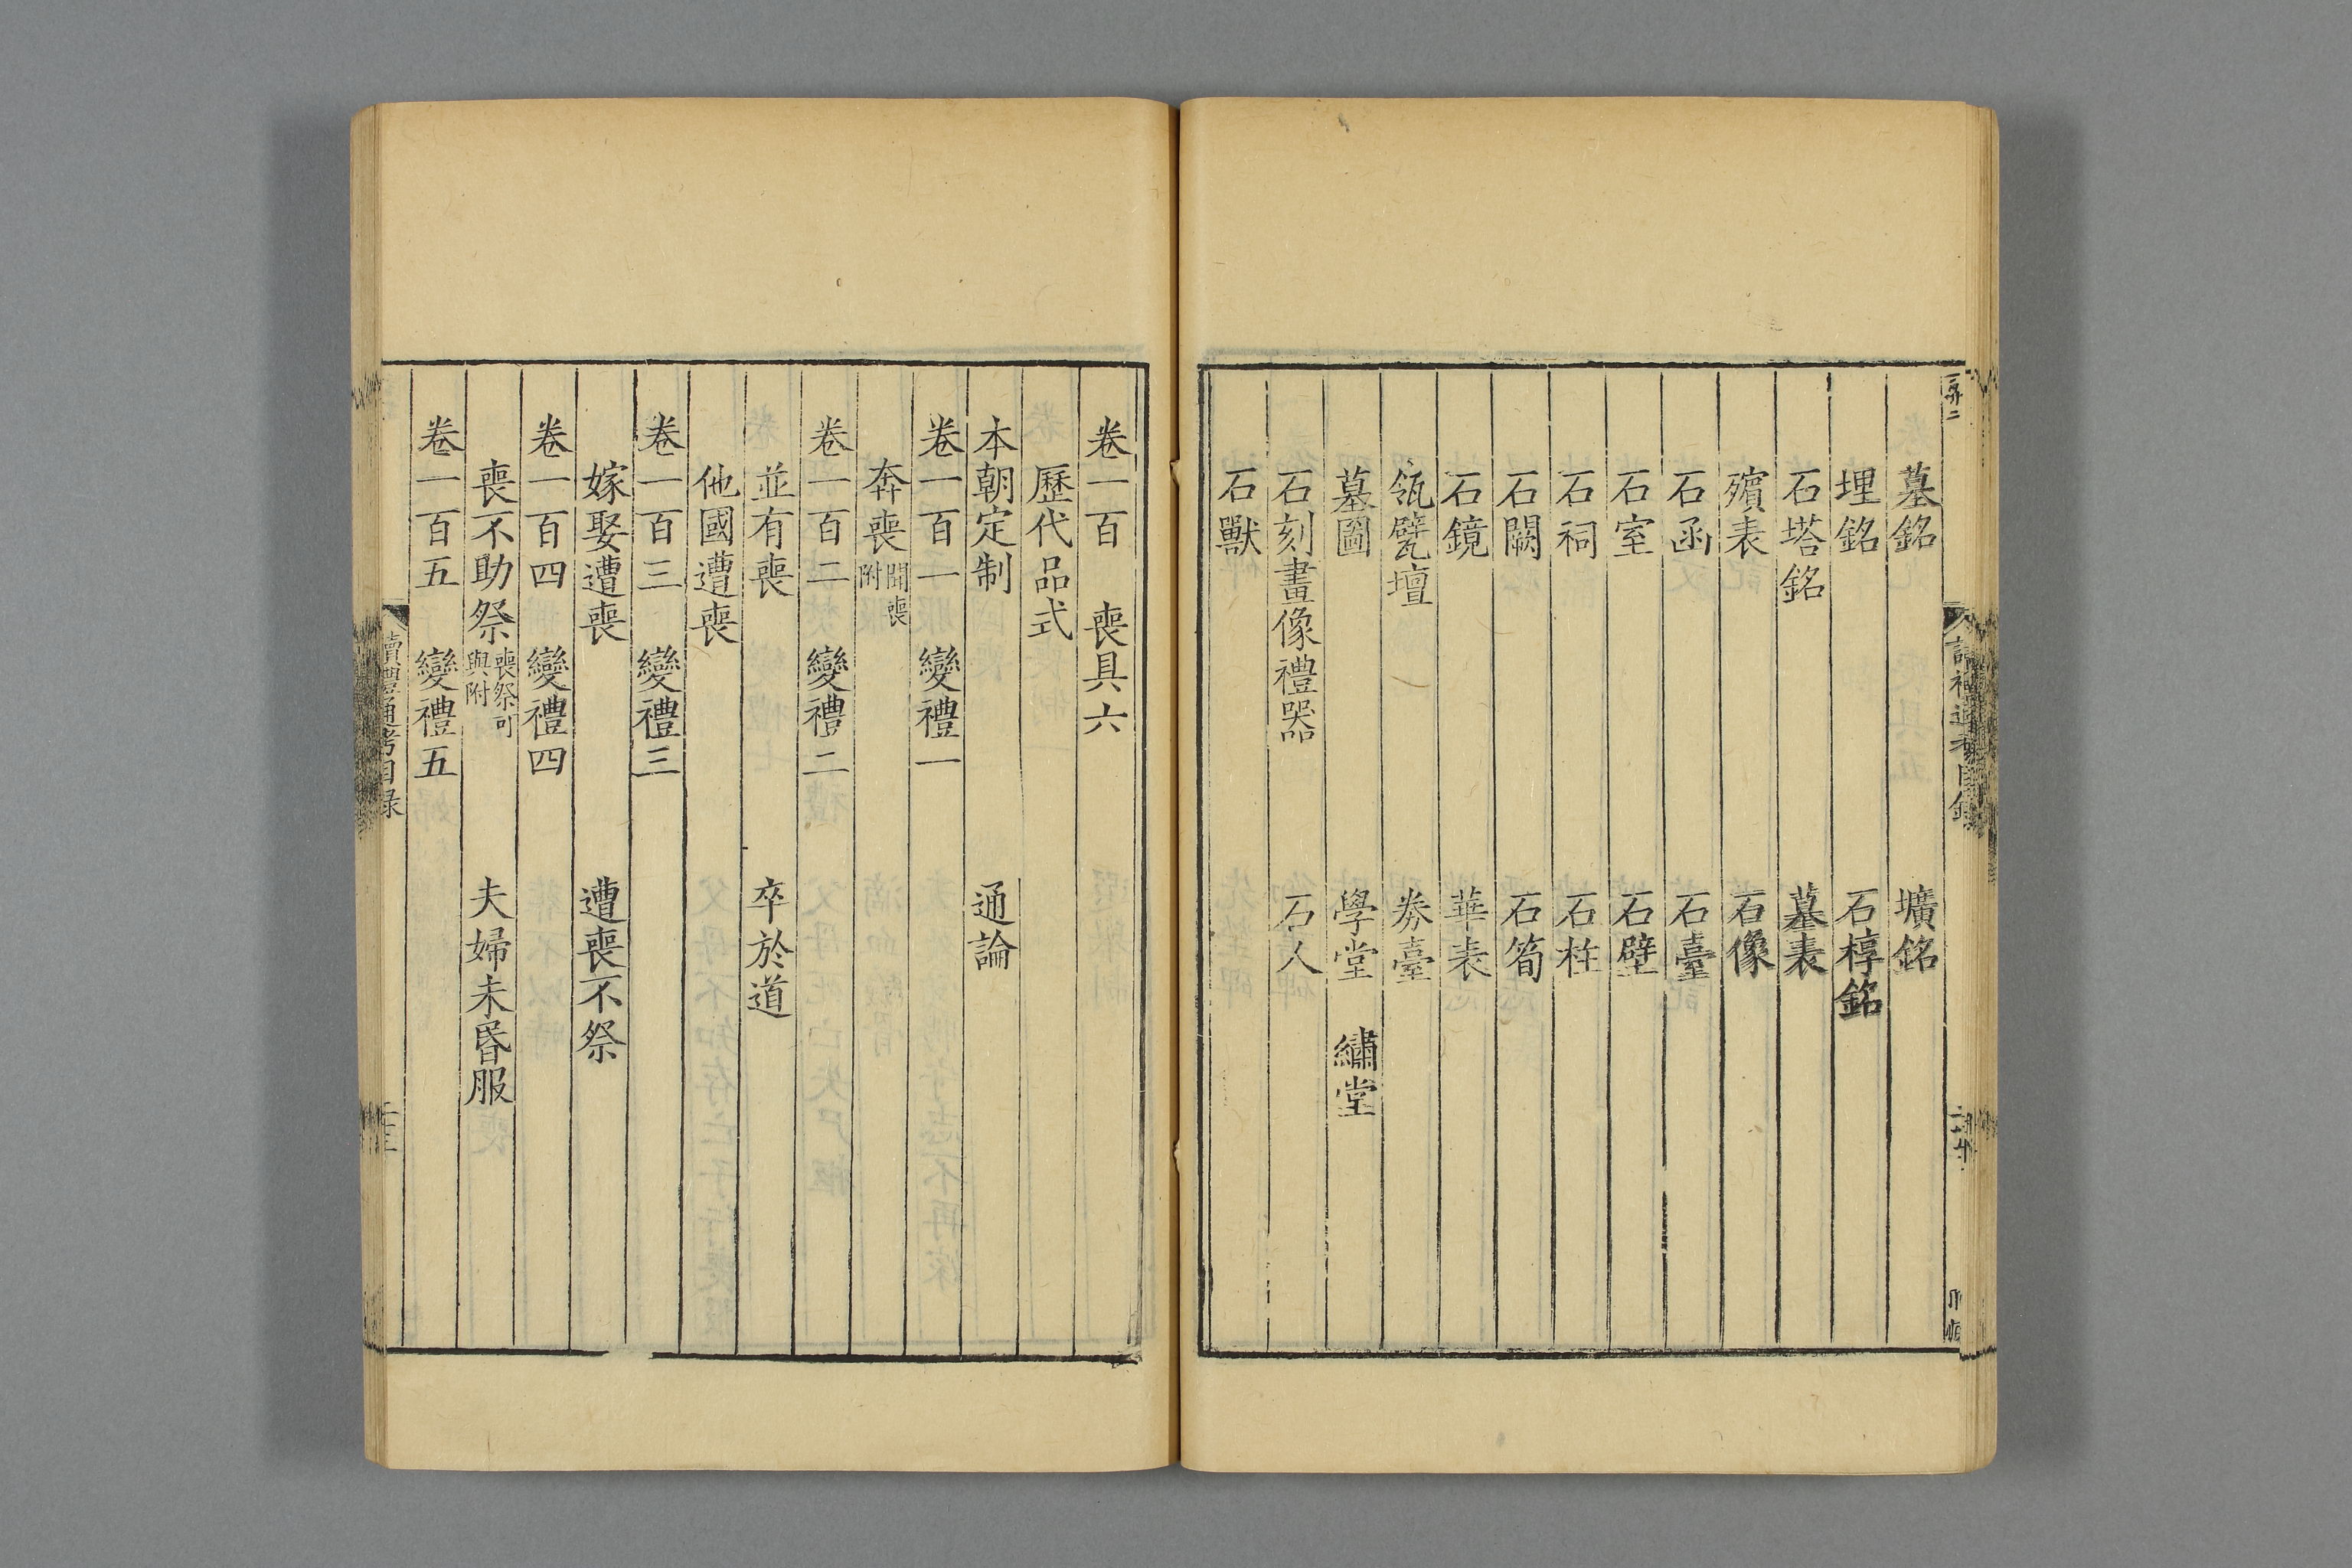 墓銘　壙銘
埋銘　石椁銘
石塔銘　墓表
殯表　石像
石函　石臺
石室　石壁
石祠　石柱
石闕　石筍
石鏡　華表
瓴甓壇　券臺
墓圖　學堂　繡堂
石刻畫像禮器　石人
石獸
卷一百　喪具六
歷代品式
本朝定制　通論
卷一百一　變禮一
奔喪聞喪附
卷一百二　變禮二
並有喪　卒於道
他國遭喪
卷一百三　變禮三
嫁娶遭喪　遭喪不祭
卷一百四　變禮四
喪不助祭喪祭可與附　夫婦未昏服
卷一百五　變禮五
讀禮通考目録